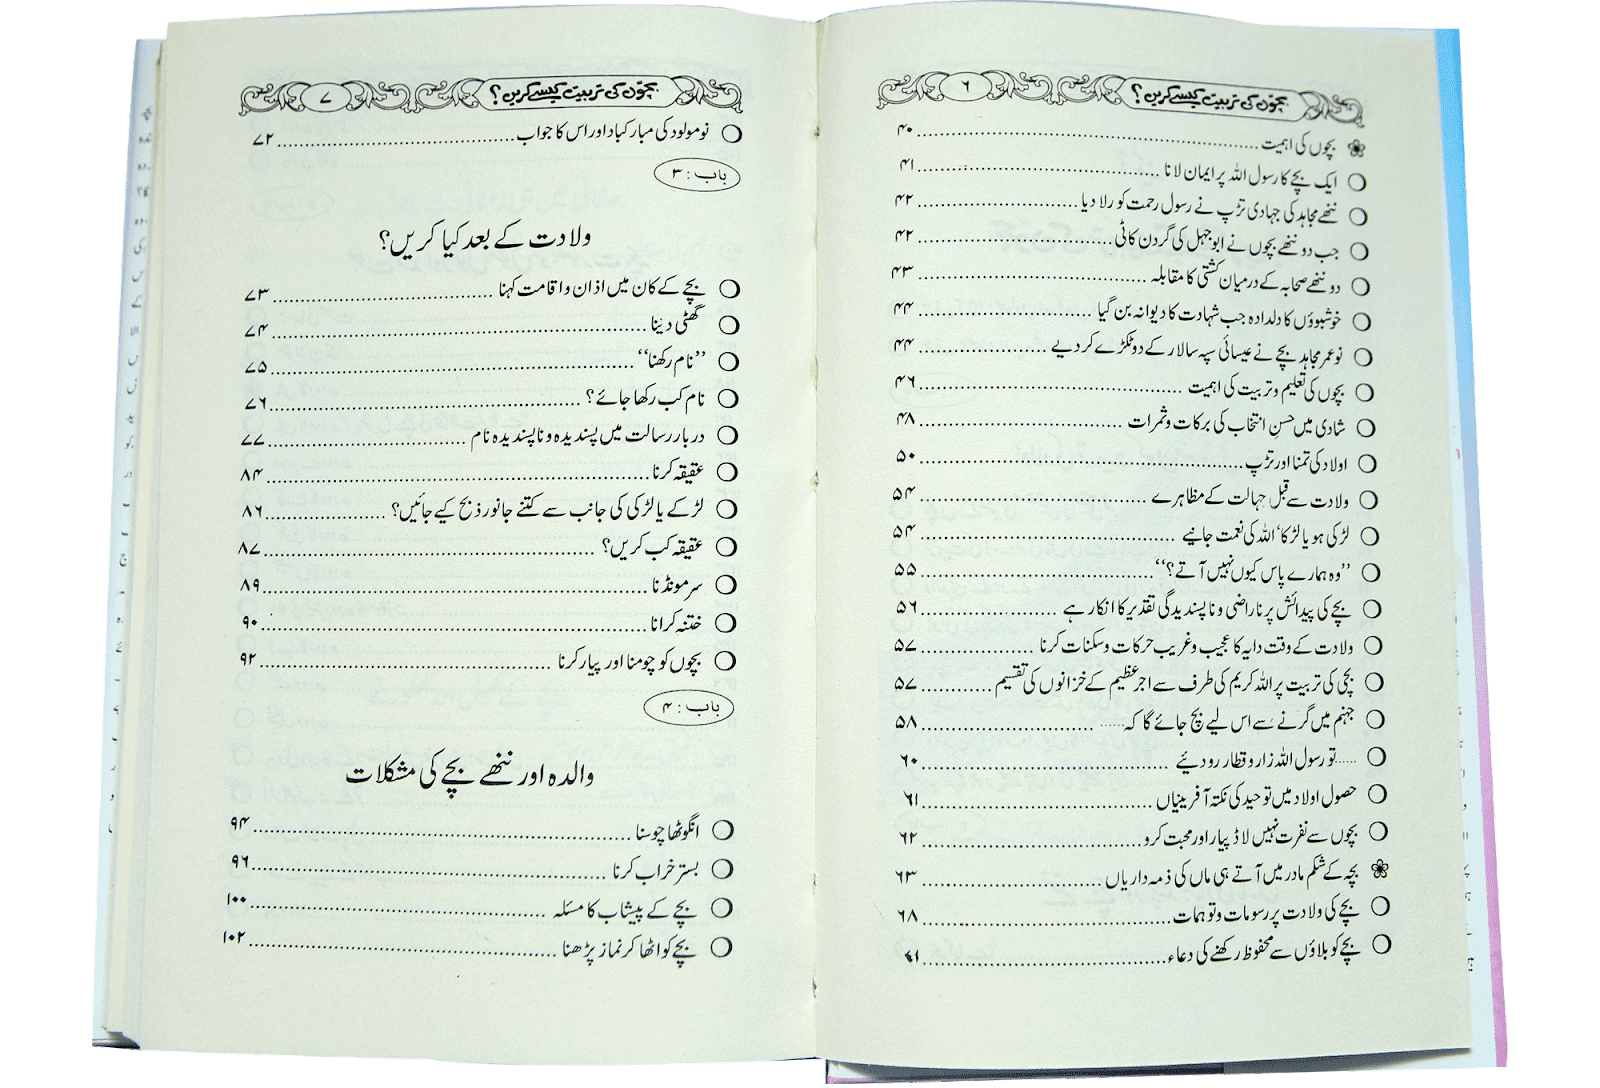 بچّوں کی تربیت کیسے کریں؟ ۶
بچوں کی اہمیت ۴۰
ایک بچے کا رسول اللہ پر ایمان لانا ۴۱
ننھے مجاہد کی جہادی تڑپ نے رسول رحمت کو رلا دیا ۴۲
جب دو ننھے بچوں نے ابو جہل کی گردن کاٹی ۴۲
دو ننھے صحابہ کے درمیان کشتی کا مقابلہ ۴۳
خوشبوؤں کا دلدادہ جب شہادت کا دیوانہ بن گیا ۴۴
نوعمر مجاہد بچے نے عیسائی سپہ سالار کے دو ٹکڑے کر دیے ۴۴
بچوں کی تعلیم و تربیت کی اہمیت ۴۶
شادی میں حسنِ انتخاب کی برکات و ثمرات ۴۸
اولاد کی تمنا اور تڑپ ۵۰
ولادت سے قبل جہالت کے مظاہرے ۵۴
لڑکی ہو یا لڑکا‘ اللہ کی نعمت جانیے ۵۴
”وہ ہمارے پاس کیوں نہیں آتے؟“ ۵۵
بچے کی پیدائش پر ناراضی و ناپسندیدگی تقدیر کا انکار ہے ۵۶
ولادت کے وقت دایہ کا عجیب و غریب حرکات و سکنات کرنا ۵۷
بچی کی تربیت پر اللہ کریم کی طرف سے اجر عظیم کے خزانوں کی تقسیم ۵۷
جہنم میں گرنے سے اس لیے بچ جائے گا کہ...... ۵۸
......تو رسول اللہ زار و قطار رو دئیے ۶۰
حصول اولاد میں توحید کی نکتہ آفرینیاں ۶۱
بچوں سے نفرت نہیں لاڈ پیار اور محبت کرو ۶۲
بچہ کے شکم مادر میں آتے ہی ماں کی ذمہ داریاں ۶۳
بچے کی ولادت پر رسومات و توہمات ۶۸
بچے کو بلاؤں سے محفوظ رکھنے کی دعاء ۷۱
بچّوں کی تربیت کیسے کریں؟ ۷
نومولود کی مبارکباد اور اس کا جواب ۷۲
باب : ۳
ولادت کے بعد کیا کریں؟
بچے کے کان میں اذان و اقامت کہنا ۷۳
گھٹی دینا ۷۴
”نام رکھنا“ ۷۵
نام کب رکھا جائے؟ ۷۶
دربار رسالت میں پسندیدہ و ناپسندیدہ نام ۷۷
عقیقہ کرنا ۸۴
لڑکے یا لڑکی کی جانب سے کتنے جانور ذبح کیے جائیں؟ ۸۶
عقیقہ کب کریں؟ ۸۷
سر مونڈنا ۸۹
ختنہ کرانا ۹۰
بچوں کو چومنا اور پیار کرنا ۹۲
باب : ۴
والدہ اور ننھے بچے کی مشکلات
انگوٹھا چوسنا ۹۴
بستر خراب کرنا ۹۶
بچے کے پیشاب کا مسئلہ ۱۰۰
بچے کو اٹھا کر نماز پڑھنا ۱۰۲